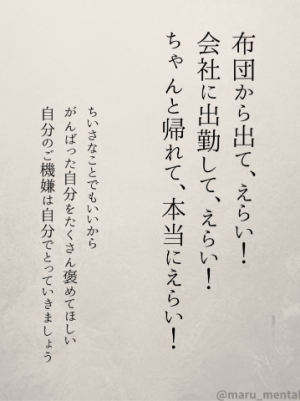 布団から出て、えらい！
会社に出勤して、えらい！
ちゃんと帰れて、本当にえらい！
ちいさなことでもいいから
がんばった自分をたくさん褒めてほしい
自分のご機嫌は自分でとっていきましょう
@maru_mental